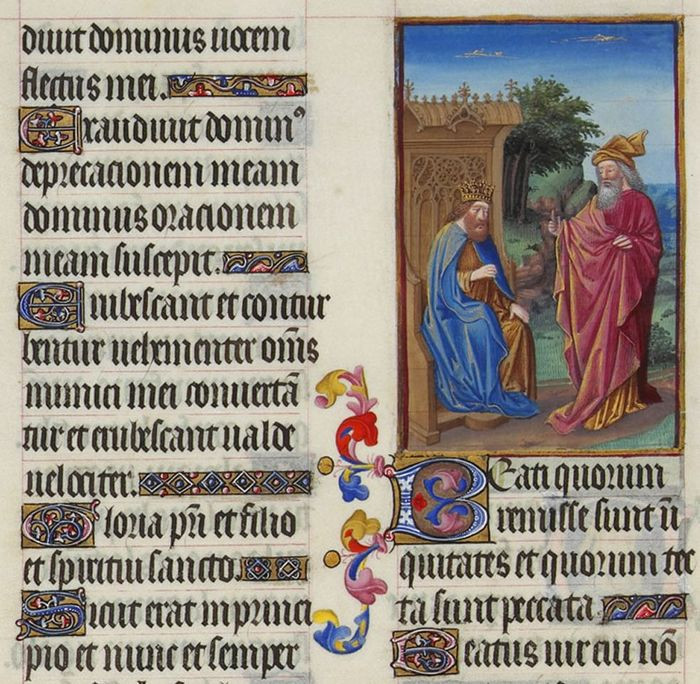 diuit dominus uocem
fletus mei.
Exaudiuit domin⁹
deprecacionem meam
dominus oracionem
meam suscepit.
Erubescant et contur
bentur uehementer om̅s
inimici mei conuerta̅
tur et erubescant ualde
uelociter.
Gloria p̅r̅i et filio
et spiritui sancto.
Sicut erat in princi
pio et nunc et semper
Beati quorum
remisse sunt i̅i̅
quitates et quorum tec
ta sunt peccata.
Beatus uir cui no̅